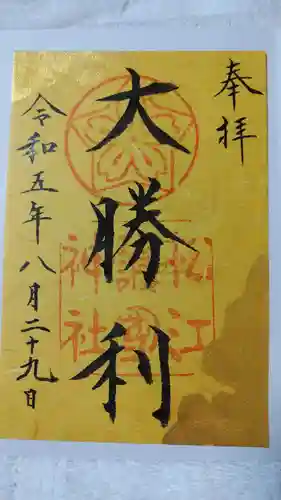 奉拝
大勝利
松江
護國
神社
令和五年八月二十九日